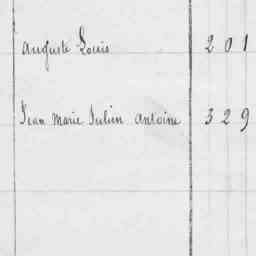 Auguste Louis 201
Jean Marie Julien Antoine 329